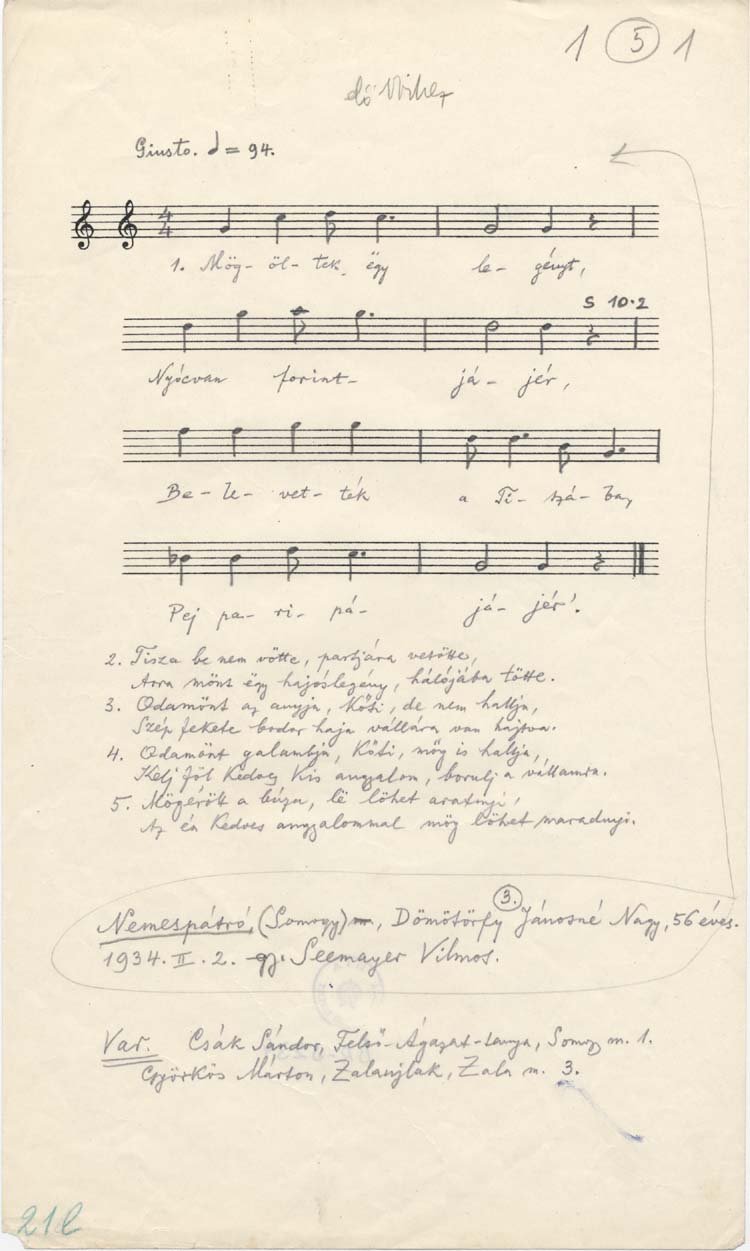 1 5 1
Giusto. = 94.
4
4
1. Mög- öl- tek ëgy le- gényt,
S 10.2
Nyócvan forint- já- jér,
Be- le- vet- ték a Ti- szá- ba,
Pej pa- ri- pá- já- jér'.
2. Tisza be nem vötte, partjára vetötte,
Arra mönt ëgy hajóslegény, hálójába tötte.
3. Odamönt az annyja, Kőti, de nem hallja,
Szép fekete bodor haja vállára van hajtva.
4. Odamönt galambja, Kőti, mög is hallja,
Kelj föl kedves kis angyalom, borulj a vállamra.
5. Mögérött a búza, lë löhet aratnyi,
Az én kedves angyalommal mög löhet maradnyi.
3.
Nemespátró, (Somogy), Dömötörfy Jánosné Nagy, 56 éves.
1934. II. 2. gy. Seemayer Vilmos.
Var. Csák Sándor, Felső-Ágazat-tanya, Somogy m. 1.
Györkös Márton, Zalaujlak, Zala m. 3.
21 l